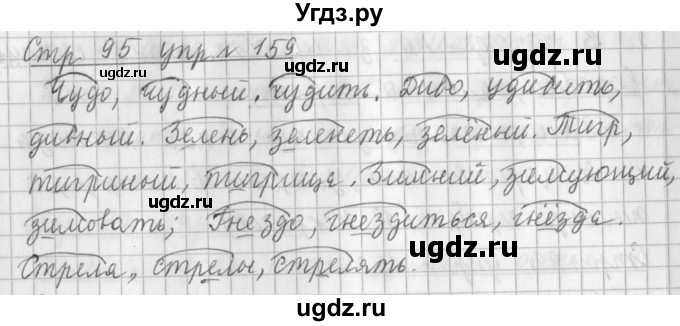 Угдз.ру
Стр 95 упр № 159
Чудо, чудный, чудить. Диво, удивить,
дивный. Зелень, зеленеть, зелёный. Тигр,
тигриный, тигрица. Зимний, зимующий,
зимовать; Гнездо, гнездиться, гнёзда.
Стрела, стрелы, стрелять.
ugdz.ru
ugdz.ru
ugdz.ru
ugdz.ru
ugdz.ru
ugdz.ru
ugdz.ru
ugdz.ru